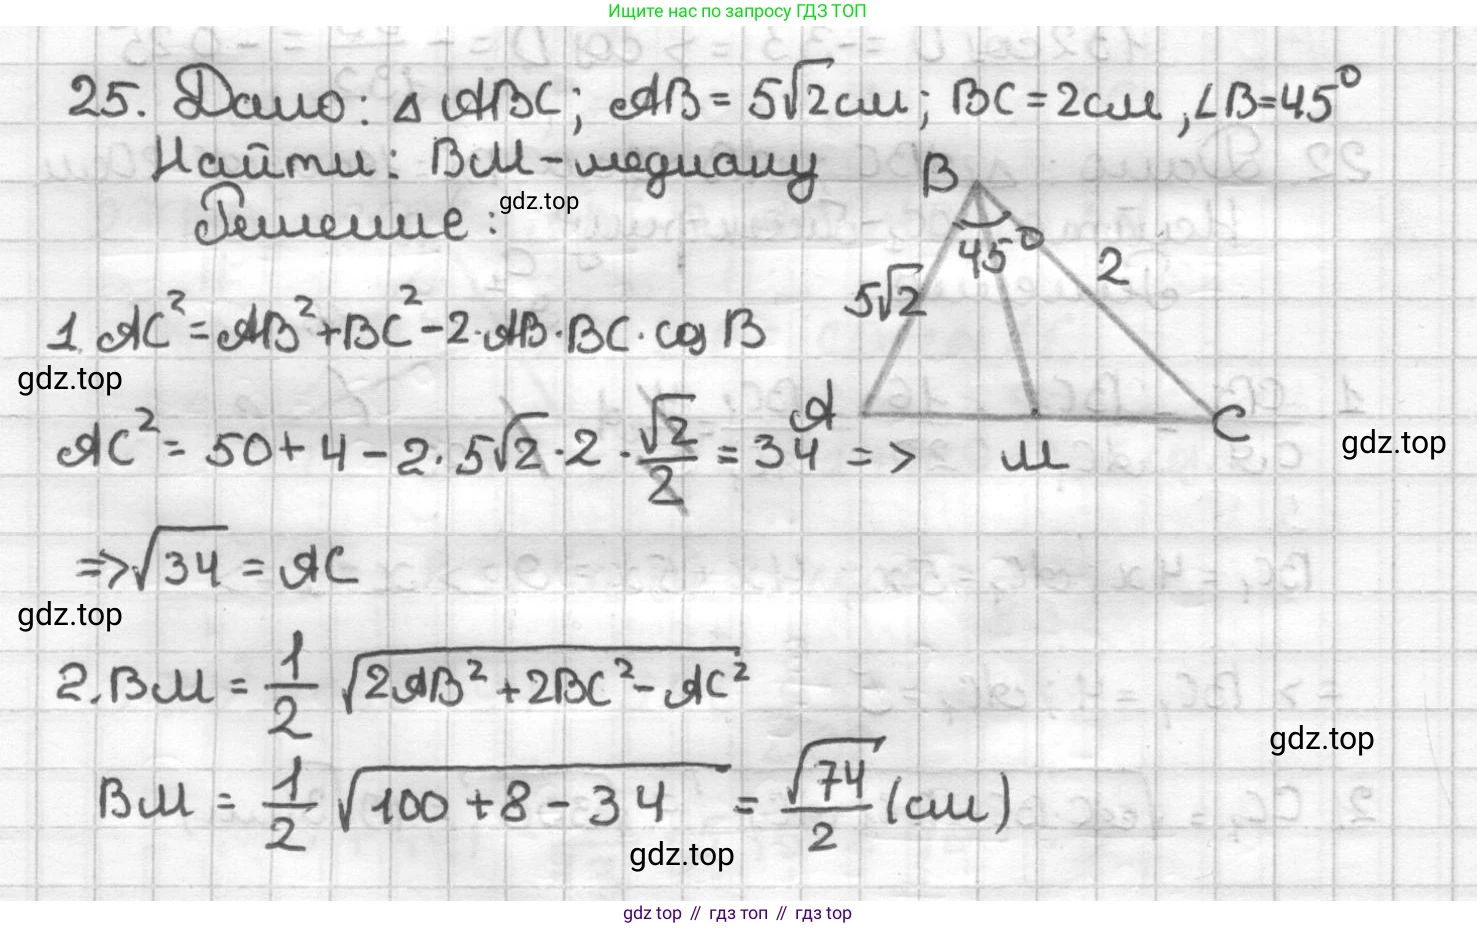 Ищите нас по запросу ГДЗ ТОП
25. Дано: △ ABC; AB = 5√2 см; BC = 2 см, ∠B = 45°
Найти: BM - медиану
Решение:
gdz.top
B
45°
5√2
2
A
M
C
1. AC² = AB² + BC² - 2·AB·BC·cos B
gdz.top
AC² = 50 + 4 - 2·5√2·2·√2/2 = 34 =>
gdz.top
=> √34 = AC
gdz.top
2. BM = 1/2 √(2AB² + 2BC² - AC²)
gdz.top
BM = 1/2 √(100 + 8 - 34) = √74/2 (см)
gdz.top
gdz top // гдз топ // гдз top